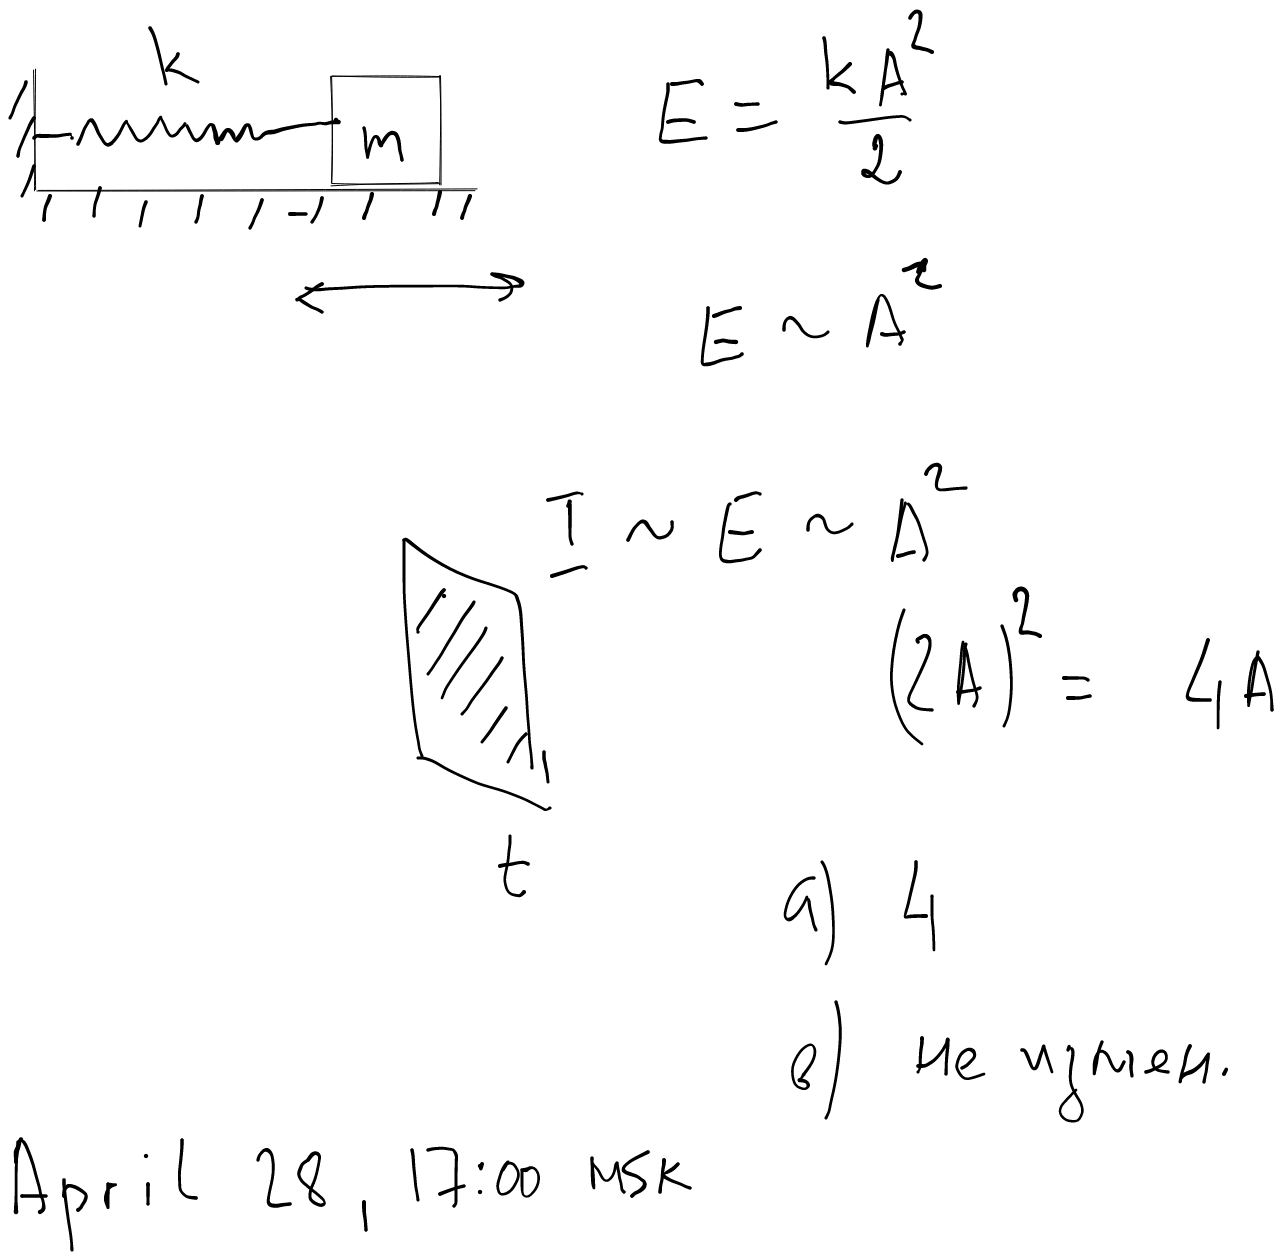 k
m
E = kA²/2
E ~ A²
I ~ E ~ A²
(2A)² = 4A
t
а) 4
в) не измен.
April 28, 17:00 MSK